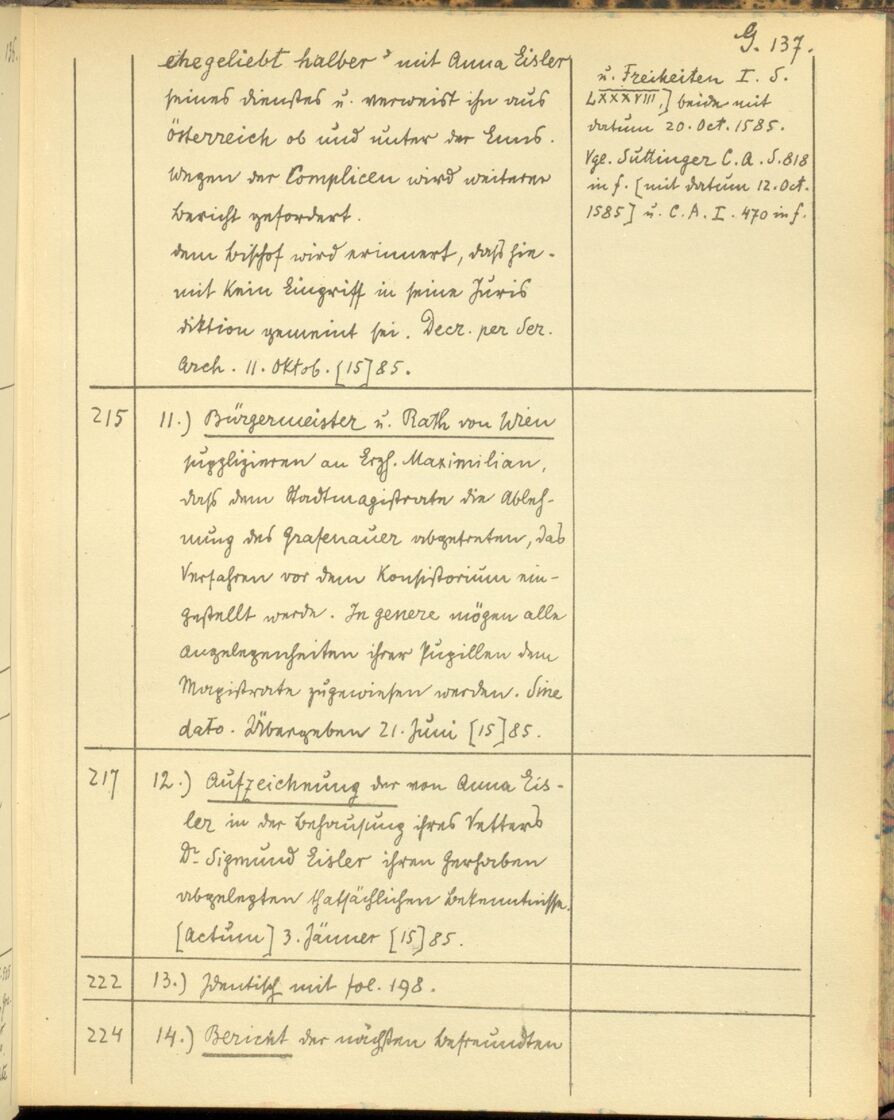 G. 137.
ehegeliebt halber" mit Anna Eisler
seines Dienstes u. verweist ihn aus
Österreich ob und unter der Enns.
Wegen der Complicen wird weiterer
Bericht gefordert.
Dem Bischof wird erinnert, dass hie-
mit kein Eingriff in seine Juris
diktion gemeint sei. Decr. per Ser.
Arch. 11. Oktob. [15]85.
u. Freiheiten I. S.
LXXXVIII,] beide mit
datum 20. Oct. 1585.
Vgl. Suttinger C. A. S. 818
in f. [mit datum 12. Oct.
1585] u. C. A. I. 470 in f.
215 11.) Bürgermeister u. Rath von Wien
supplizieren an Erzh. Maximilian,
dass dem Stadtmagistrate die Ableh-
nung des Grafenauer abgetreten, das
Verfahren vor dem Konsistorium ein-
gestellt werde. In genere mögen alle
Angelegenheiten ihrer Pupillen dem
Magistrate zugewiesen werden. Sine
dato. Übergeben 21. Juni [15]85.
217 12.) Aufzeichnung der von Anna Eis-
ler in der Behausung ihres Vetters
Dr Sigmund Eisler ihren Gerhaben
abgelegten thatsächlichen Bekenntnisse.
[Actum] 3. Jänner [15]85.
222 13.) Identisch mit fol. 198.
224 14.) Bericht der nächsten befreundten